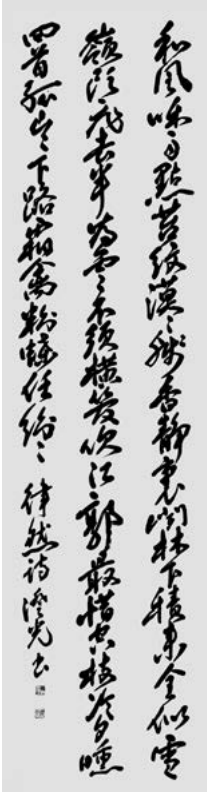 和風咊雨點苔紋漠〻殘香靜裏聞林下積來全似雪
嶺頭飛去半為雲不須橫管吹江郭最惜空枝冷夕曛
回首孤山〻下路霜禽粉蝶任紛〻 律然詩 澄光書